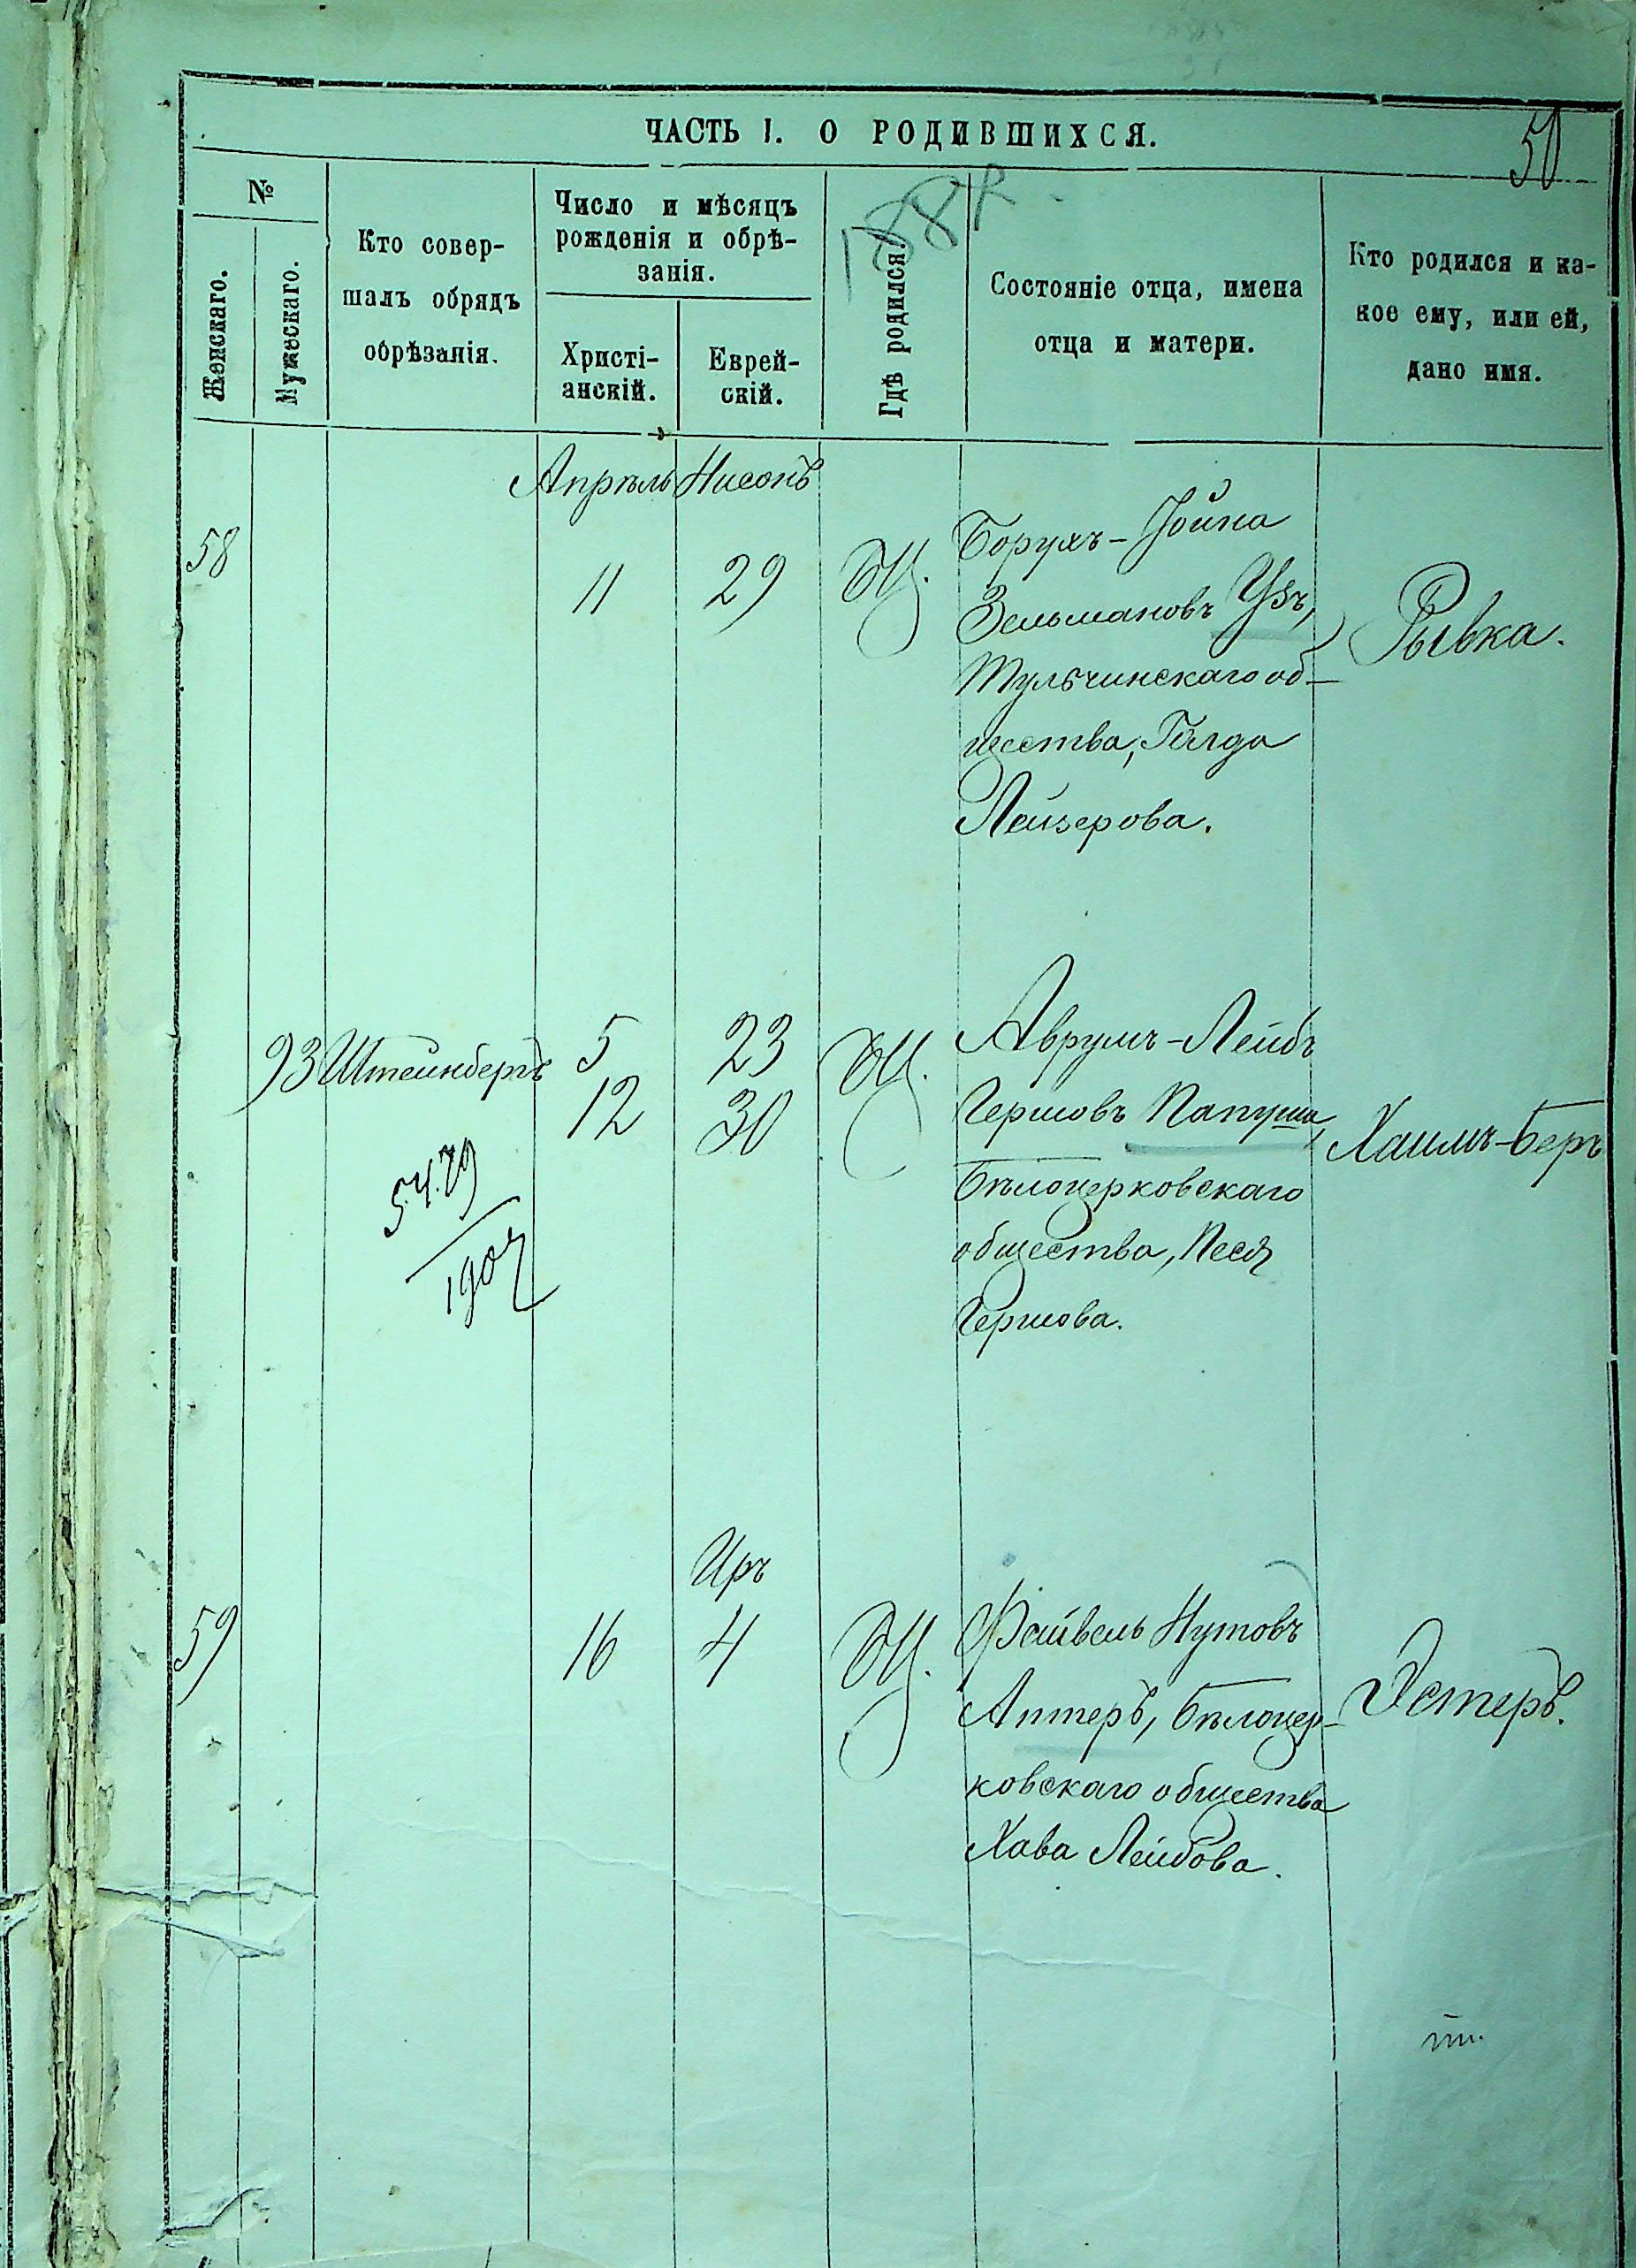 ЧАСТЬ I. О РОДИВШИХСЯ.
50
№
Женскаго.
Мужескаго.
Кто совер-
шалъ обрядъ
обрѣзанія.
Число и мѣсяцъ
рожденія и обрѣ-
занія.
Христі-
анскій.
Еврей-
скій.
Гдѣ родился.
Состояніе отца, имена
отца и матери.
Кто родился и ка-
кое ему, или ей,
дано имя.
Апрѣль Нисонъ
58 11 29 БЦ. Борухъ-Іойна
Зельмановъ Узъ,
Тульчинскаго об-
щества, Голда
Лейзерова.
Рывка.
93 Штейнбергъ 5 23 БЦ. Аврумъ-Лейбъ
12 30 Гершовъ Папуша,
Бѣлоцерковскаго
общества, Песя
Гершова.
Хаимъ-Беръ
5479
1907
Иръ
59 16 4 БЦ. Файвель Нутовъ
Аптеръ, Бѣлоцер-
ковскаго общества
Хава Лейбова.
Эстеръ.